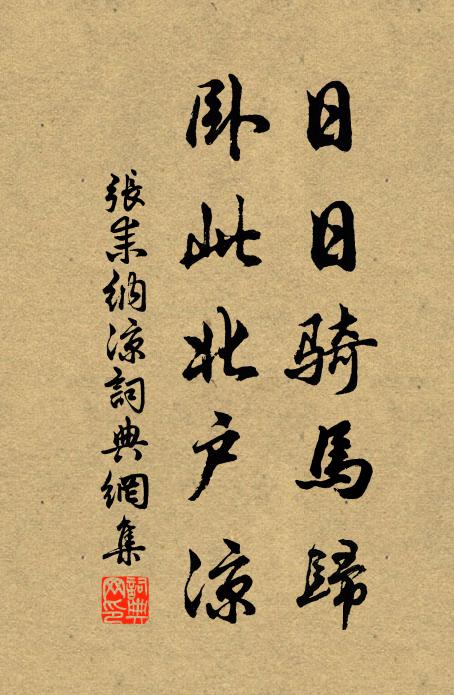 日日騎馬歸
卧此北户涼
張耒納涼詞典網集
詞典网印